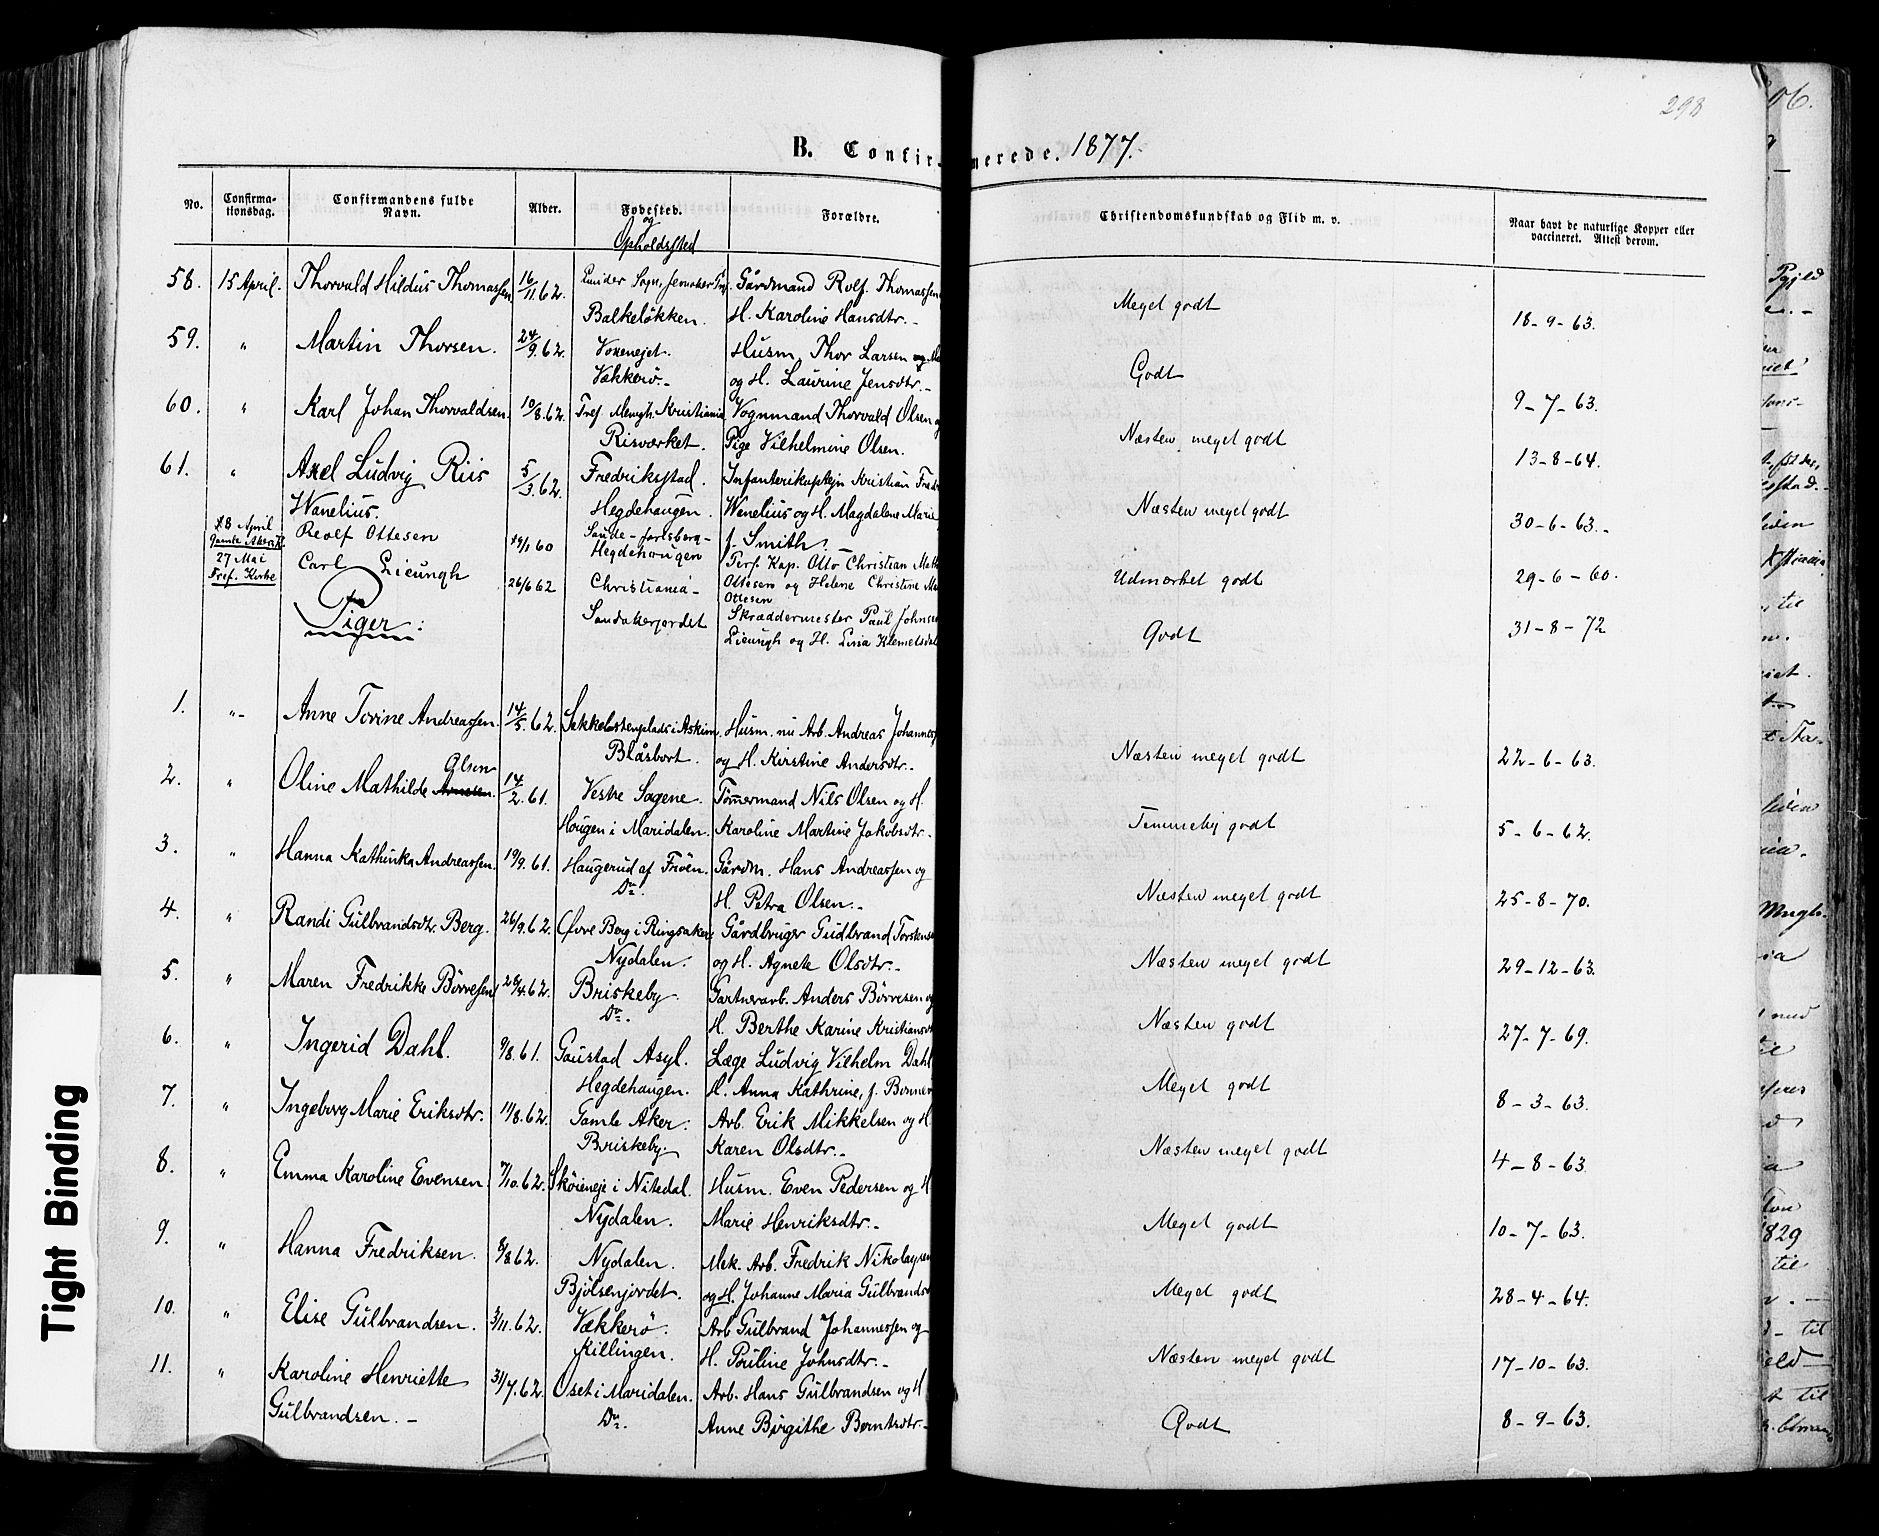 298
B. Confirmerede. 1877.
No. Confirmationsdag. Confirmandens fulde Navn. Alder. Fødested. og Opholdssted Forældre. Christendomskundskab og Flid m. v. Naar havt de naturlige Kopper eller vaccineret. Attest derom.
58. 15 April. Thorvald Hildus Thomassen 16/11.62. Sogn, Gårdmand Rolf Thomassen
Balkeløkken. H. Karoline Hansdtr.- Meget godt 18-9-63.
59. " Martin Thorsen. 24/9.62. Voxenejet. Husm. Thor Larsen
Vækkerö.- og H. Laurine Jensdtr.- Godt 9-7-63.
60. " Karl Johan Thorvaldsen. 10/8.62. Tref. Menigh. Kristiania Vognmand Thorvald Olsen og
Risværket. Pige Vilhelmine Olsen. Næsten meget godt 13-8-64.
61. " Axel Ludvig Riis 5/3.62. Fredriksstad. Infanterikaptejn Kristian
Wenelius. Hegdehaugen. Wenelius og H. Magdalene Marie Næsten meget godt 30-6-63.-
f. Smith.
18 April Gamle Akersk. Reolf Ottesen 19/1 60 Sande-Jarlsberg- Hegdehougen Kap. Otto Christian
Ottesen og Helene Christine Ottesen Udmærket godt 29-6-60.
27 Mai Tref. Kirke Carl Lieungh 26/6 62 Christiania- Sandakerjordet Skræddermester Paul Johnsen
Lieungh og H. Lisia Klemetsdtr Godt 31-8-72
Piger:
1. "- Anne Torine Andreassen. 14/5.62. i Askim. Husm. nu Arb. Andreas Johannes
Blåsbort. og H. Kirstine Andersdtr.- Næsten meget godt 22-6-63.
2. " Oline Mathilde Arnesen. Olsen 14/2.61. Vestre Sagene. Tømmermand Nils Olsen og H.
Hougen i Maridalen. Karoline Martine Jakobsdtr.- Temmelig godt 5-6-62.
3. " Hanna Kathinka Andreassen. 19/9.61. Haugerud af Frøen. Gårdm. Hans Andreassen og
Do. H. Petra Olsen.- Næsten meget godt 25-8-70.
4. " Randi Gulbrandsdtr. Berg. 26/9.62. Øvre Berg i Ringsaker Gårdbruger Gudbrand
Nydalen. og H. Agnete Olsdtr.- Næsten meget godt 29-12-63.
5. " Maren Fredrikke Børresen 28/4.62. Briskeby. Gartnerarb. Anders Børresen og
Do. H. Berthe Karine Kristians Næsten godt 27-7-69.
6. " Ingerid Dahl. 9/8.61. Gaustad Asyl. Læge Ludvig Vilhelm Dahl
Hegdehaugen. H. Anna Kathrine, f. Bonnev Meget godt 8-3-63.
7. " Ingeborg Marie Eriksdtr. 11/8.62. Gamle Aker. Arb. Erik Mikkelsen og H.
Briskeby. Karen Olsdtr.- Næsten meget godt 4-8-63.
8. " Emma Karoline Evensen. 7/10.62. i Nitedal. Husm. Even Pedersen og H
Nydalen. Marie Henriksdtr.- Meget godt 10-7-63.
9. " Hanna Fredriksen. 8/8.62. Nydalen. Mek. Arb. Fredrik Nikolaysen
Bjølsenjordet. og H. Johanne Maria Gulbrands Meget godt 28-4-64.
10. " Elise Gulbrandsen. 3/11.62. Vækkerö. Arb Gulbrand Johannessen og
Killingen. H. Pouline Johnsdtr.- Næsten meget godt 17-10-63.
11. " Karoline Henriette 31/7.62. Oset i Maridalen. Arb. Hans Gulbrandsen og H.
Gulbrandsen.- Do. Anne Birgithe Berntsdtr.- Godt 8-9-63.
Tight Binding